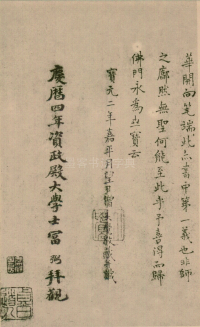 華開向筆端此亦書中第一義也非師
之廓然無聖何能至此孝子善得而歸
佛門永為至寶云
寶元二年嘉平月
慶曆四年資政殿大學士富弼拜觀